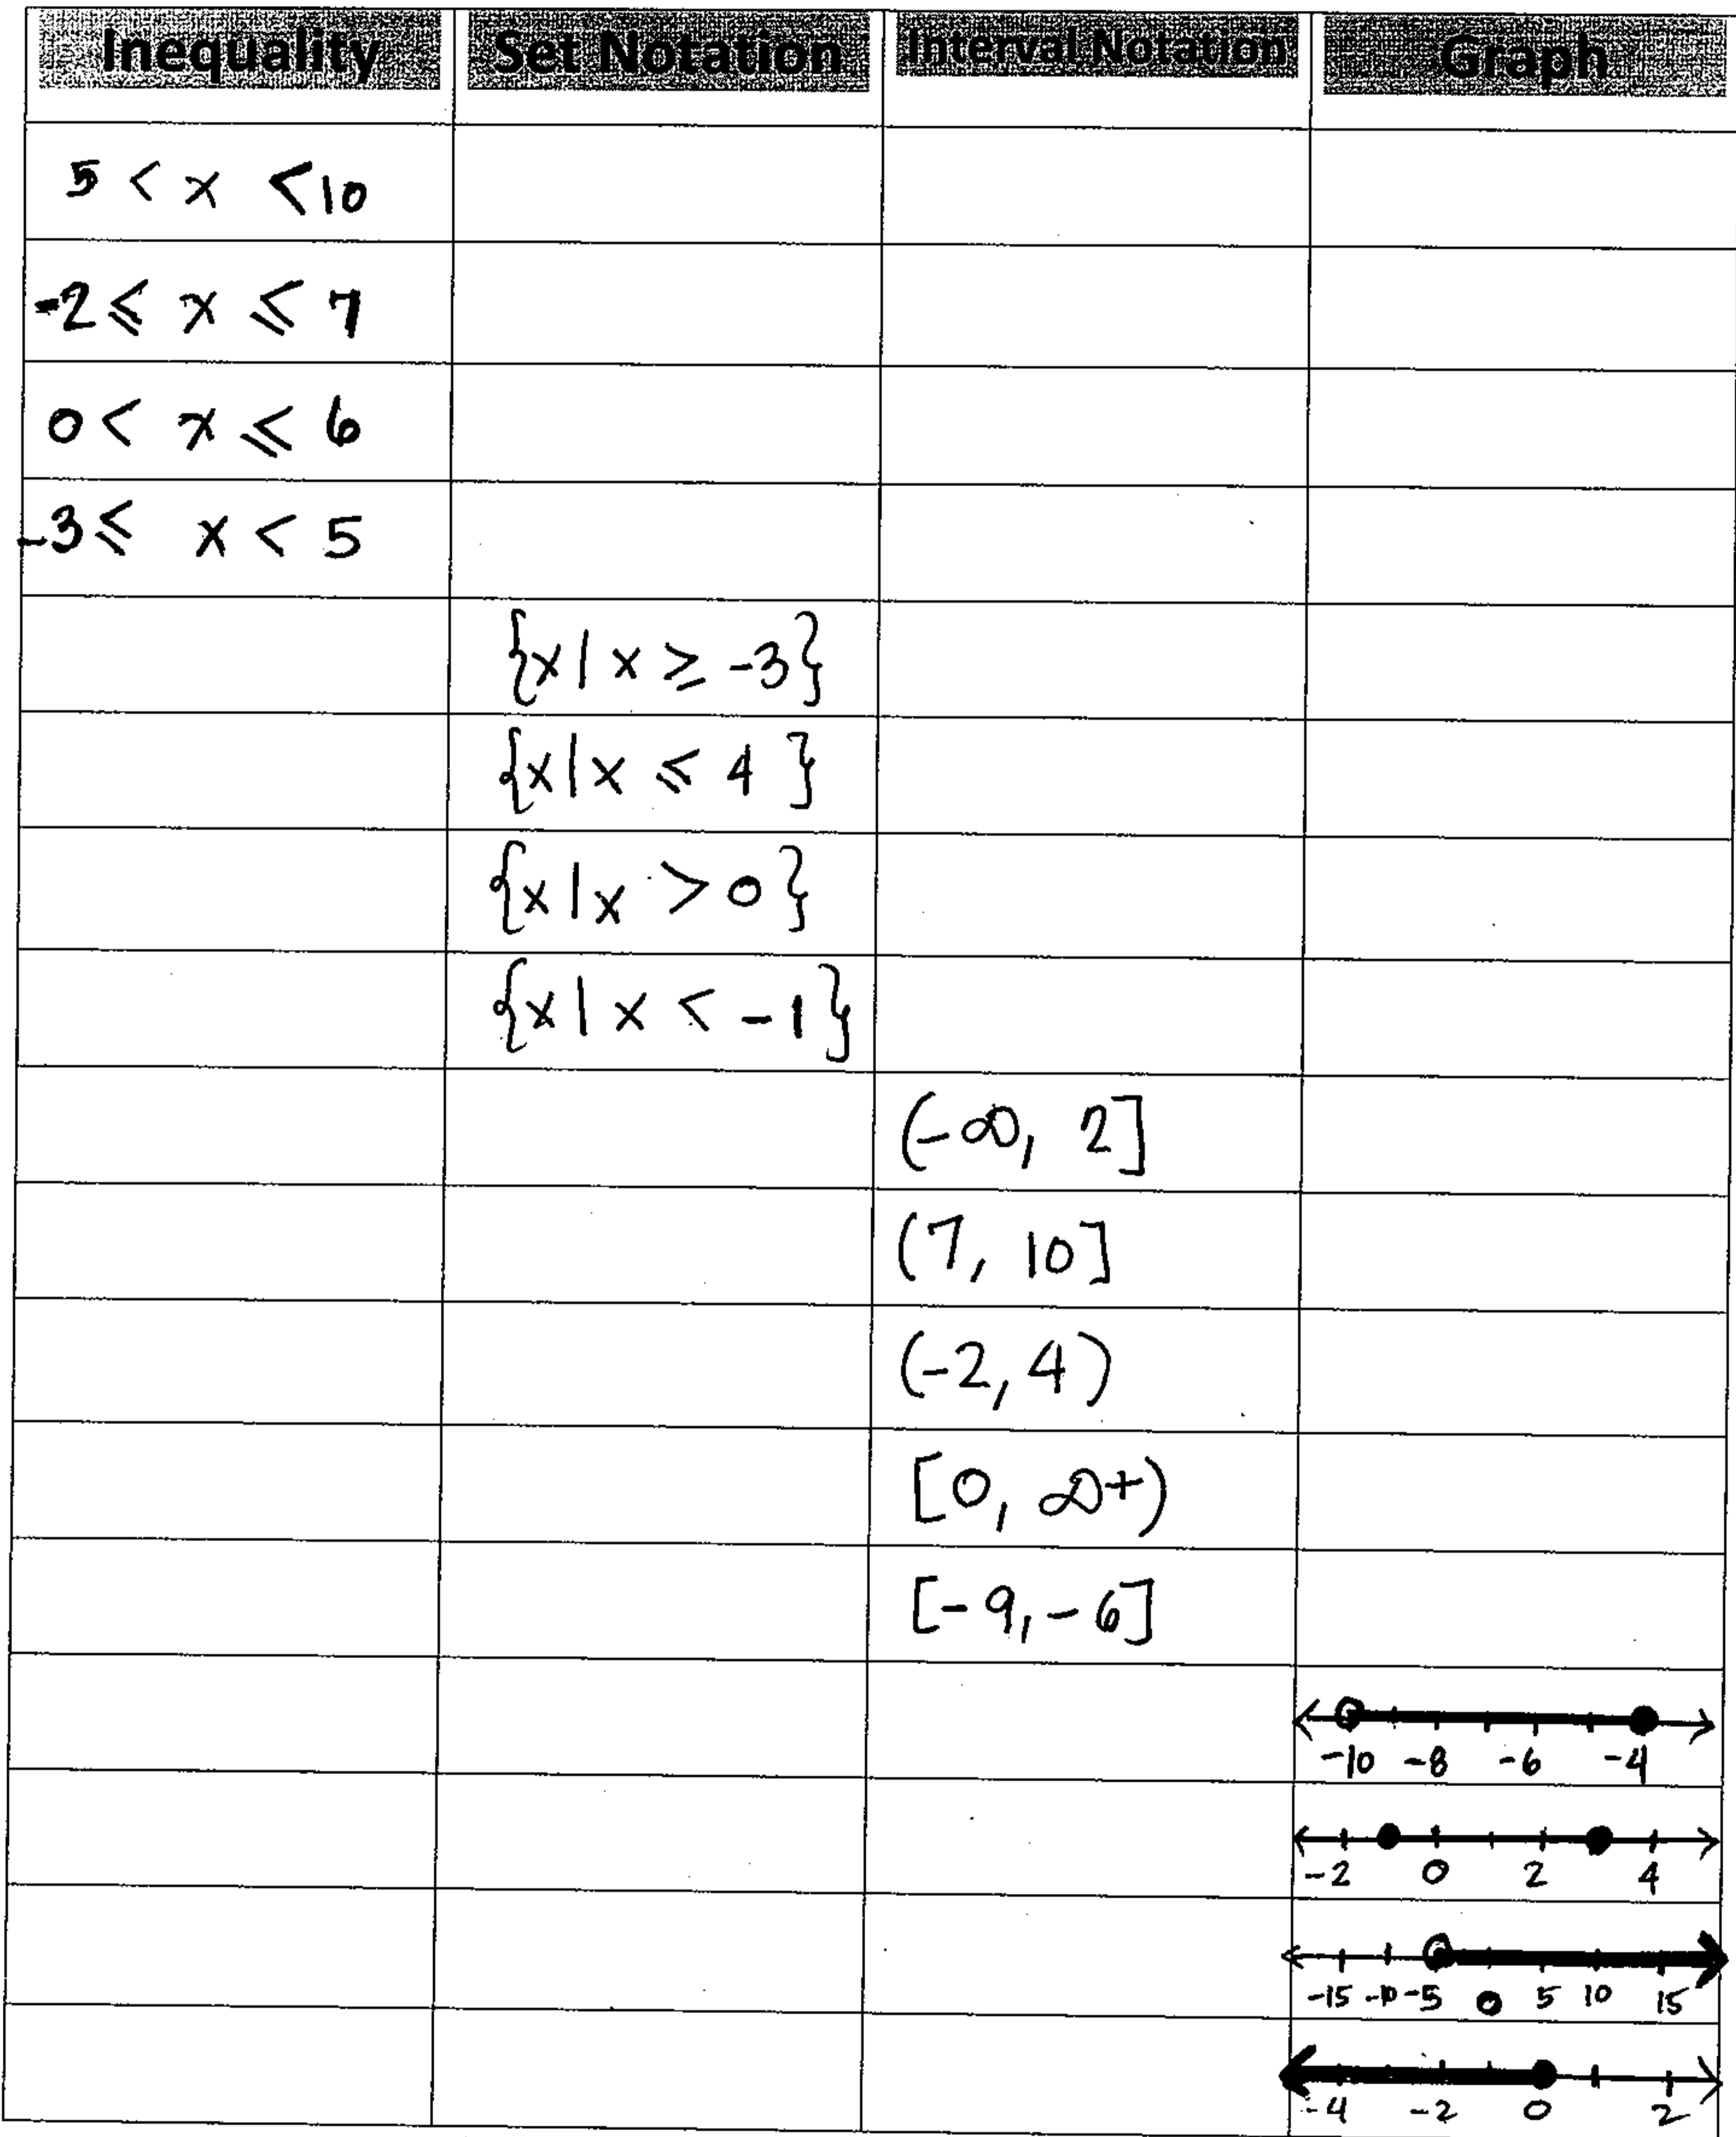 Inequality Set Notation Interval Notation Graph
5 < x < 10
-2 ≤ x ≤ 7
0 < x ≤ 6
-3 ≤ x < 5
{x | x ≥ -3}
{x | x ≤ 4 }
{x | x > 0}
{x | x < -1}
(-∞, 2]
(7, 10]
(-2, 4)
[0, ∞+)
[-9, -6]
-10 -8 -6 -4
-2 0 2 4
-15 -10 -5 0 5 10 15
-4 -2 0 2